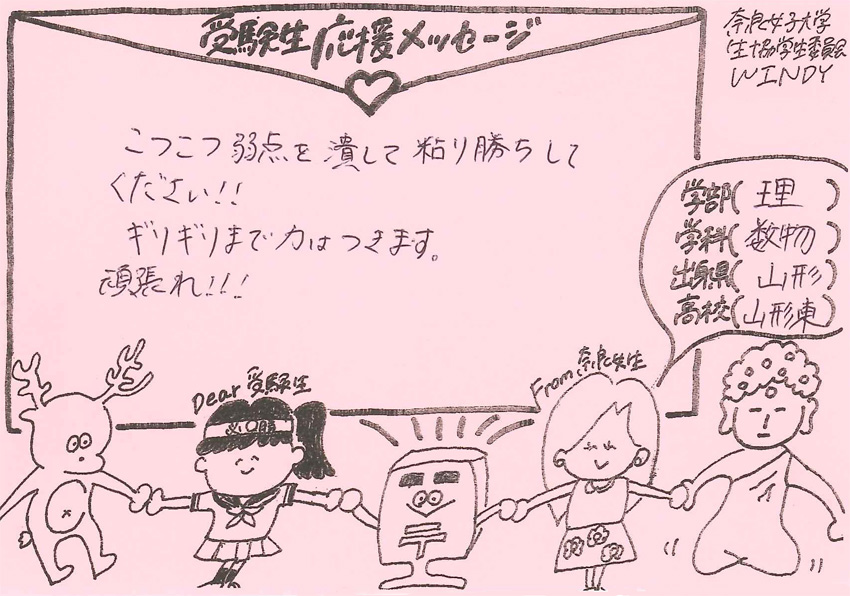 受験生応援メッセージ
奈良女子大学
生協学生委員会
WINDY
こつこつ弱点を潰して粘り勝ちして
ください!!
ギリギリまで力はつきます。
頑張れ!!!
学部(理)
学科(数物)
出身県(山形)
高校(山形東)
Dear 受験生
必勝
From 奈良女生
〒